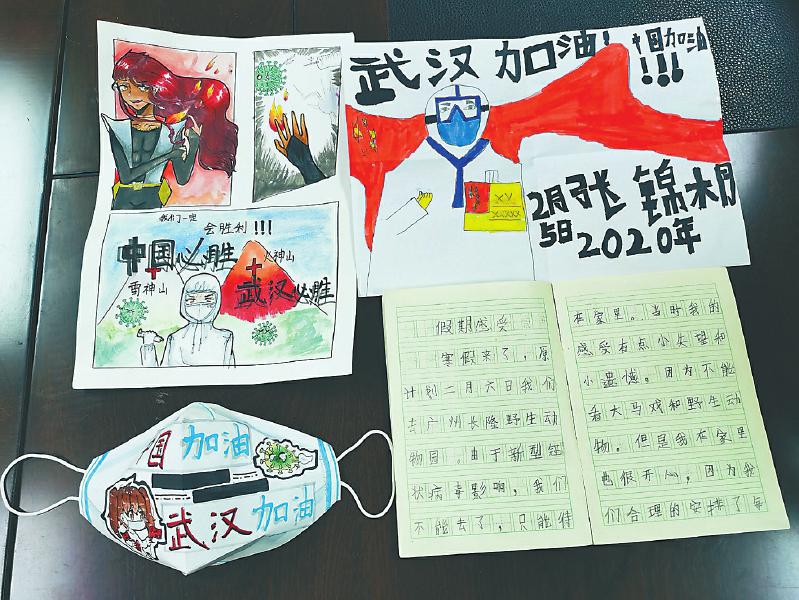 我们一定
会胜利!!!
中国必胜
火神山
雷神山
武汉必胜
武汉加油!
中国加油
!!!
2月
5日
张锦
2020年
假期感受
寒假来了,原
计划二月六日我们
去广州长隆野生动
物园。由于新型冠
状病毒影响,我们
不能去了,只能待
在家里。当时我的
感受有点小失望和
小遗憾。因为不能
看大马戏和野生动
物。但是我在家里
也很开心,因为我
们合理的安排了每
国加油
武汉加油